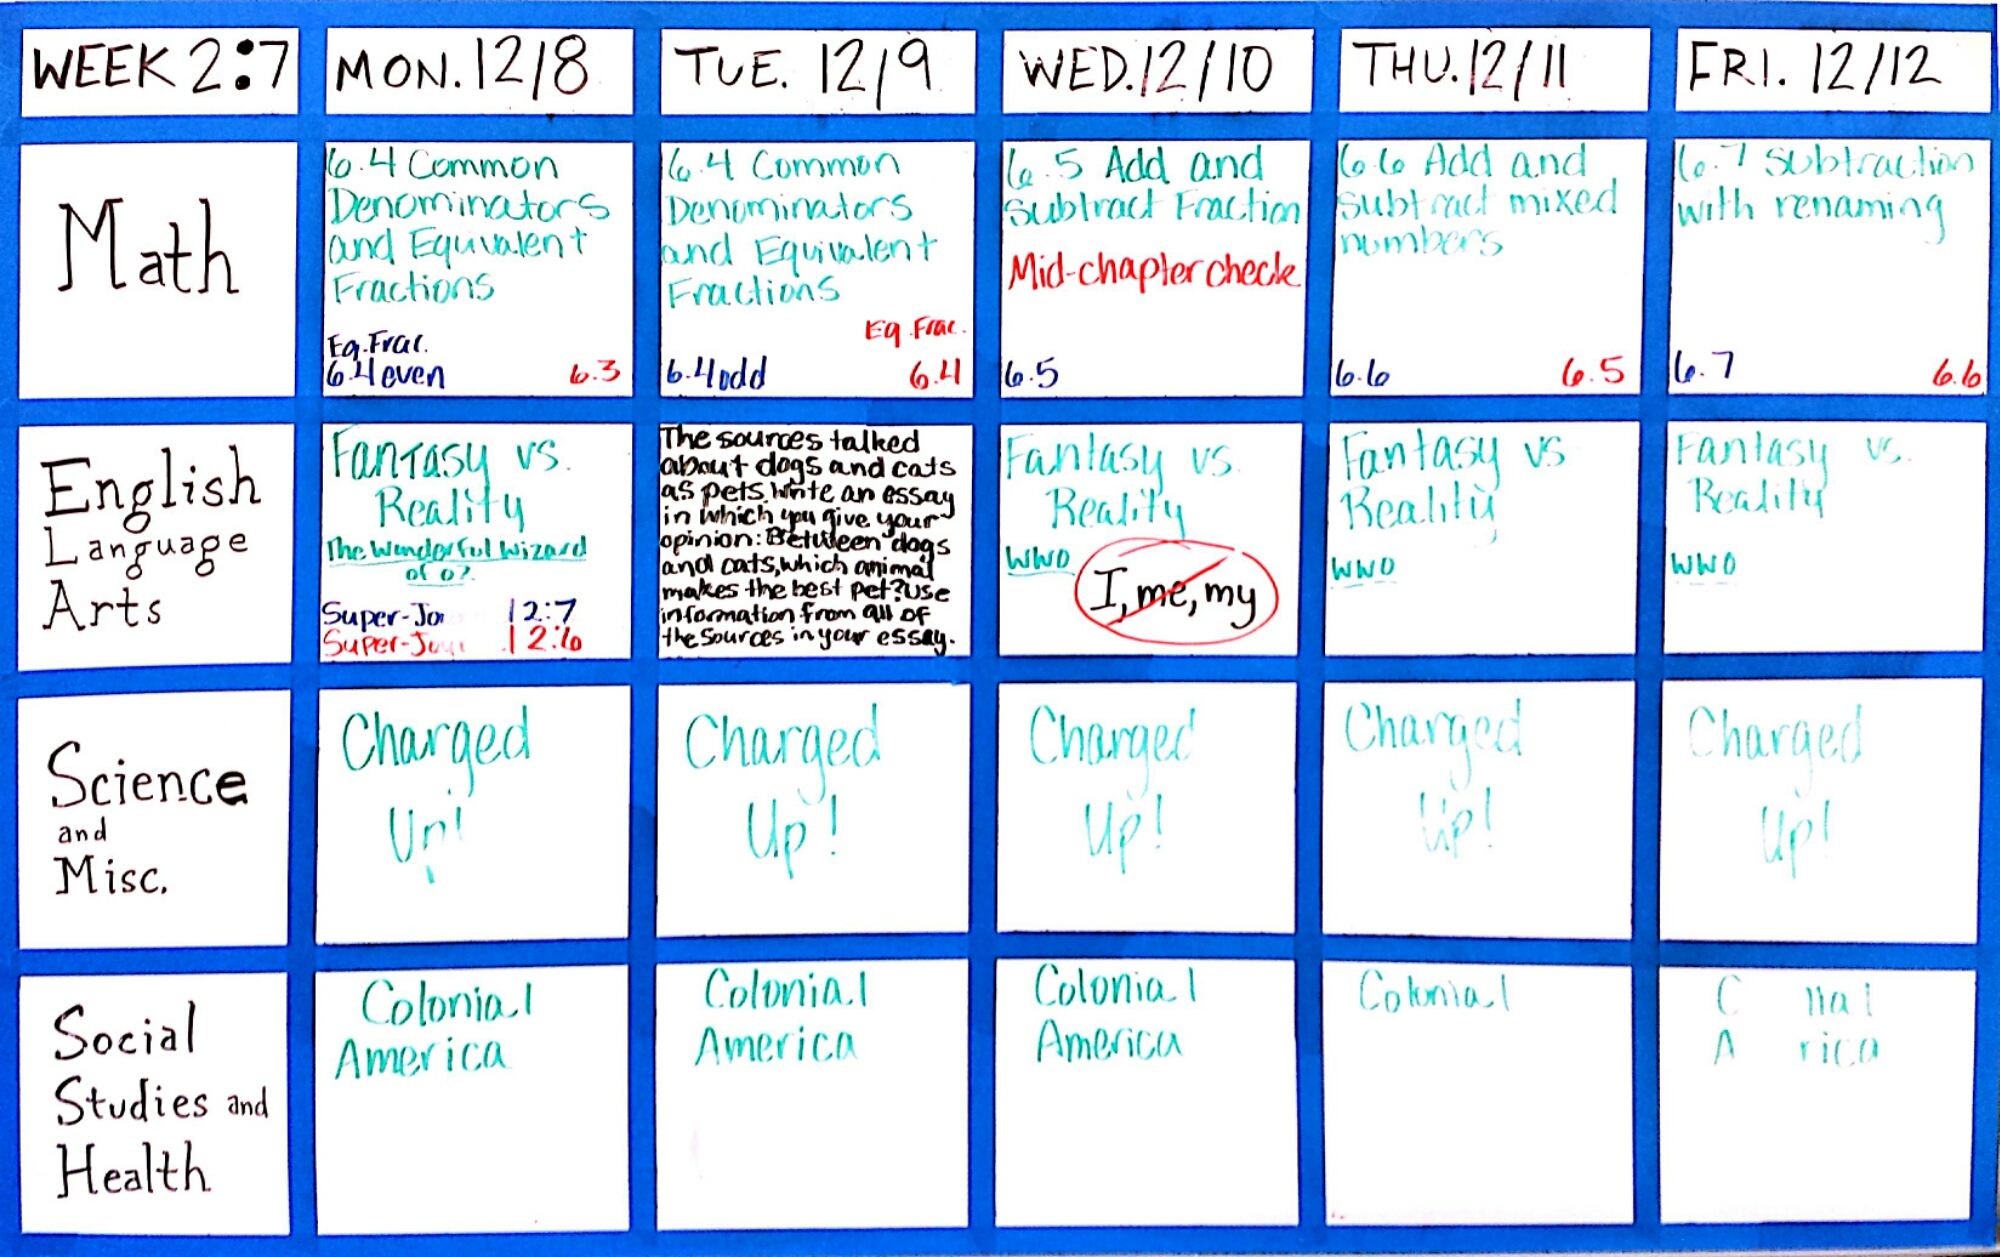 WEEK 2:7
MON. 12/8
TUE. 12/9
WED. 12/10
THU. 12/11
FRI. 12/12
Math
6.4 Common
Denominators
and Equivalent
Fractions
Eq. Frac.
6.4 even
6.3
6.4 Common
Denominators
and Equivalent
Fractions
Eq. Frac.
6.4 odd
6.4
6.5 Add and
Subtract Fraction
Mid-chapter check
6.5
6.6 Add and
subtract mixed
numbers
6.6
6.5
6.7 Subtraction
with renaming
6.7
6.6
English
Language
Arts
Fantasy vs.
Reality
The Wonderful Wizard
of Oz
Super-Jo 12:7
Super-Jou 12:6
The sources talked
about dogs and cats
as pets. Write an essay
in which you give your
opinion: Between dogs
and cats, which animal
makes the best pet? Use
information from all of
the sources in your essay.
Fantasy vs.
Reality
WWO
I, me, my
Fantasy vs
Reality
WWO
Fantasy vs.
Reality
WWO
Science
and
Misc.
Charged
Up!
Charged
Up!
Charged
Up!
Charged
Up!
Charged
Up!
Social
Studies and
Health
Colonial
America
Colonial
America
Colonial
America
Colonial
C nial
A rica